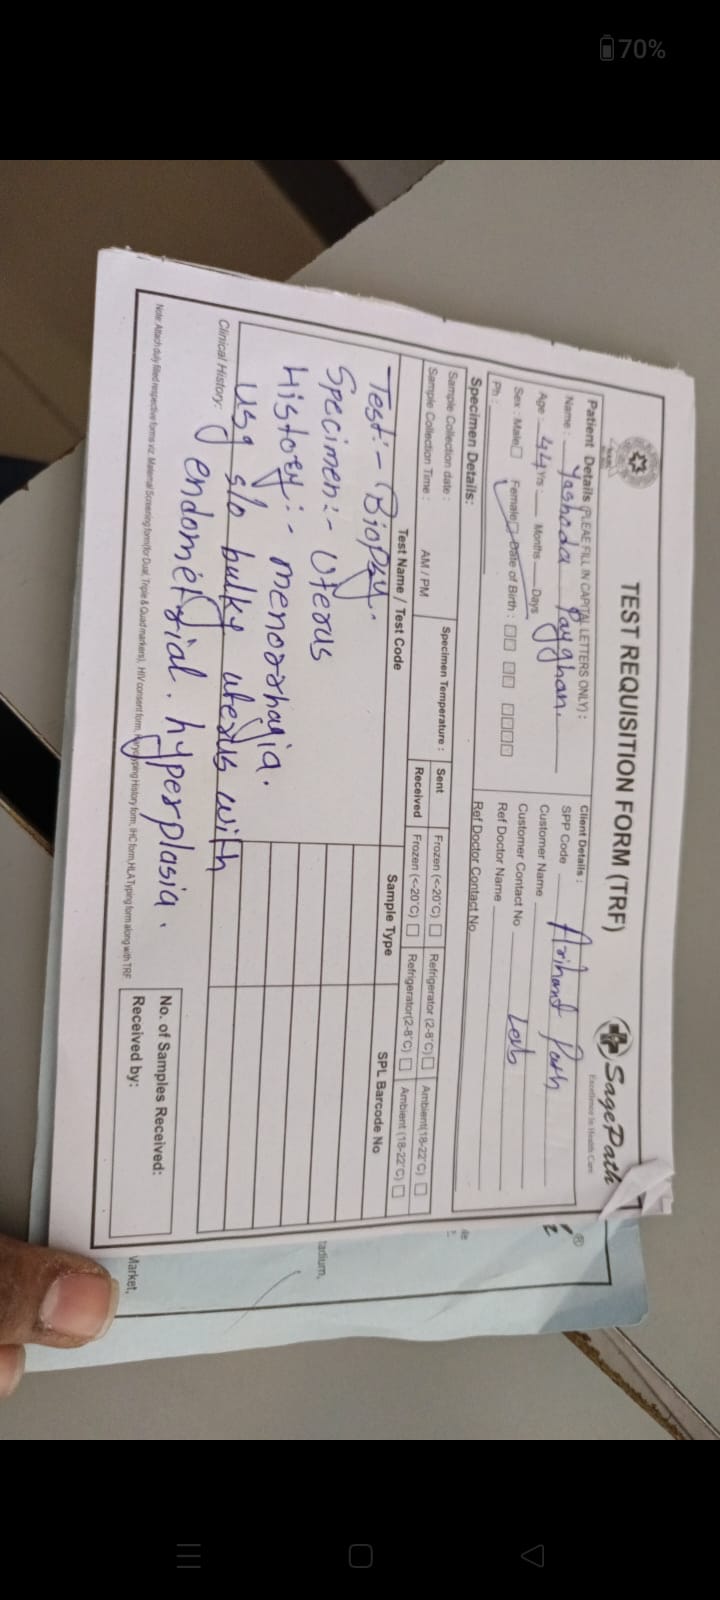 70%
TEST REQUISITION FORM (TRF)
SagePath
Excellence In Health Care
Patient Details (PLEAE FILL IN CAPITAL LETTERS ONLY) :
Name : Yashoda Payghan.
Age : 44 Yrs Months Days
Sex : Male Female Date of Birth :
Ph :
Client Details :
SPP Code Arihant Path
Customer Name
Customer Contact No Lab
Ref Doctor Name
Ref Doctor Contact No
Specimen Details:
Sample Collection date :
Sample Collection Time : AM / PM
Specimen Temperature :
Sent Frozen (<-20°C) Refrigerator (2-8°C) Ambient(18-22°C)
Received Frozen (<-20°C) Refrigerator(2-8°C) Ambient (18-22°C)
Test Name / Test Code Sample Type SPL Barcode No
Test:- Biopsy.
Specimen:- Uterus
History:- menorrhagia.
usg s/o bulky uterus with
Clinical History: endometrial. hyperplasia.
No. of Samples Received:
Received by:
Note: Attach duly filled respective forms viz. Maternal Screening form(for Dual, Triple & Quad markers), HIV consent form, Karyotyping History form, IHC form, HLA Typing form along with TRF
tadium,
Market,